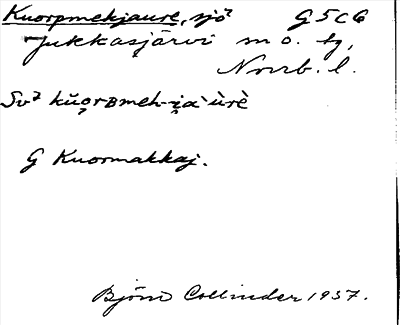 Kuorpmekjaure, sjö G5C6
Jukkasjärvi sn o. tg,
Norrb. l.
G Kuormakkaj.
Björn Collinder 1937.